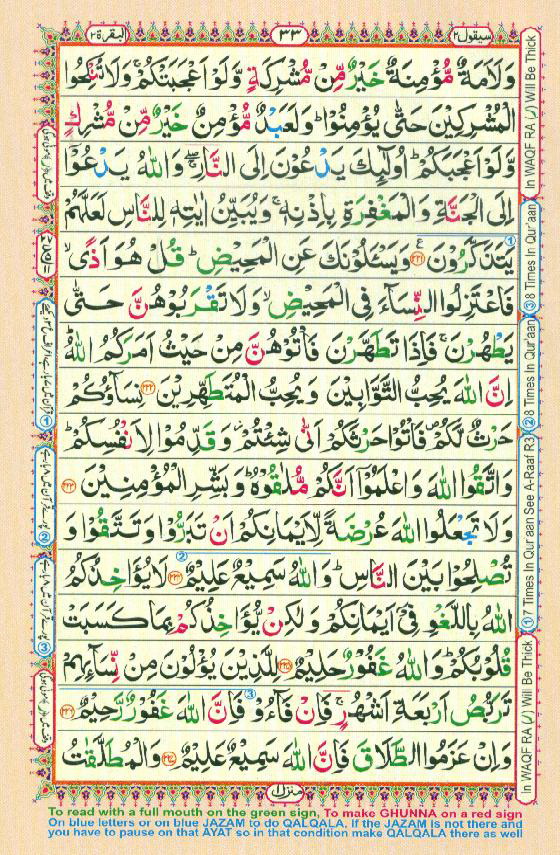 سیقول ٢
٣٣
البقرة ٢
وَلَاَمَةٌ مُّؤْمِنَةٌ خَيْرٌ مِّنْ مُّشْرِكَةٍ وَّلَوْ اَعْجَبَتْكُمْ ۚ وَلَا تُنْكِحُوا
الْمُشْرِكِيْنَ حَتّٰى يُؤْمِنُوْا ؕ وَلَعَبْدٌ مُّؤْمِنٌ خَيْرٌ مِّنْ مُّشْرِكٍ
وَّلَوْ اَعْجَبَكُمْ ؕ اُولٰٓئِكَ يَدْعُوْنَ اِلَى النَّارِ ۖۚ وَاللّٰهُ يَدْعُوْۤا
اِلَى الْجَنَّةِ وَالْمَغْفِرَةِ بِاِذْنِهٖ ۚ وَيُبَيِّنُ اٰيٰتِهٖ لِلنَّاسِ لَعَلَّهُمْ
يَتَذَكَّرُوْنَ ﴿٢٢١﴾ وَيَسْـَٔلُوْنَكَ عَنِ الْمَحِيْضِ ؕ قُلْ هُوَ اَذًى ۙ
فَاعْتَزِلُوا النِّسَآءَ فِى الْمَحِيْضِ ۙ وَلَا تَقْرَبُوْهُنَّ حَتّٰى
يَطْهُرْنَ ۚ فَاِذَا تَطَهَّرْنَ فَاْتُوْهُنَّ مِنْ حَيْثُ اَمَرَكُمُ اللّٰهُ ؕ
اِنَّ اللّٰهَ يُحِبُّ التَّوَّابِيْنَ وَيُحِبُّ الْمُتَطَهِّرِيْنَ ﴿٢٢٢﴾ نِسَآؤُكُمْ
حَرْثٌ لَّكُمْ ۪ فَاْتُوْا حَرْثَكُمْ اَنّٰى شِئْتُمْ ؗ وَقَدِّمُوْا لِاَنْفُسِكُمْ ؕ
وَاتَّقُوا اللّٰهَ وَاعْلَمُوْۤا اَنَّكُمْ مُّلٰقُوْهُ ؕ وَبَشِّرِ الْمُؤْمِنِيْنَ ﴿٢٢٣﴾
وَلَا تَجْعَلُوا اللّٰهَ عُرْضَةً لِّاَيْمَانِكُمْ اَنْ تَبَرُّوْا وَتَتَّقُوْا وَ
تُصْلِحُوْا بَيْنَ النَّاسِ ؕ وَاللّٰهُ سَمِيْعٌ عَلِيْمٌ ﴿٢٢٤﴾ لَا يُؤَاخِذُكُمُ
اللّٰهُ بِاللَّغْوِ فِىْۤ اَيْمَانِكُمْ وَلٰكِنْ يُّؤَاخِذُكُمْ بِمَا كَسَبَتْ
قُلُوْبُكُمْ ؕ وَاللّٰهُ غَفُوْرٌ حَلِيْمٌ ﴿٢٢٥﴾ لِلَّذِيْنَ يُؤْلُوْنَ مِنْ نِّسَآئِهِمْ
تَرَبُّصُ اَرْبَعَةِ اَشْهُرٍ ۚ فَاِنْ فَآءُوْ فَاِنَّ اللّٰهَ غَفُوْرٌ رَّحِيْمٌ ﴿٢٢٦﴾
وَاِنْ عَزَمُوا الطَّلَاقَ فَاِنَّ اللّٰهَ سَمِيْعٌ عَلِيْمٌ ﴿٢٢٧﴾ وَالْمُطَلَّقٰتُ
منزل ١
In WAQF RA (ر) Will Be Thick
③ 8 Times In Qur'aan
② 8 Times In Qur'aan See A-Raaf R3
① 7 Times In Qur'aan
In WAQF RA (ر) Will Be Thick
To read with a full mouth on the green sign, To make GHUNNA on a red sign
On blue letters or on blue JAZAM to do QALQALA, If the JAZAM is not there and
you have to pause on that AYAT so in that condition make QALQALA there as well